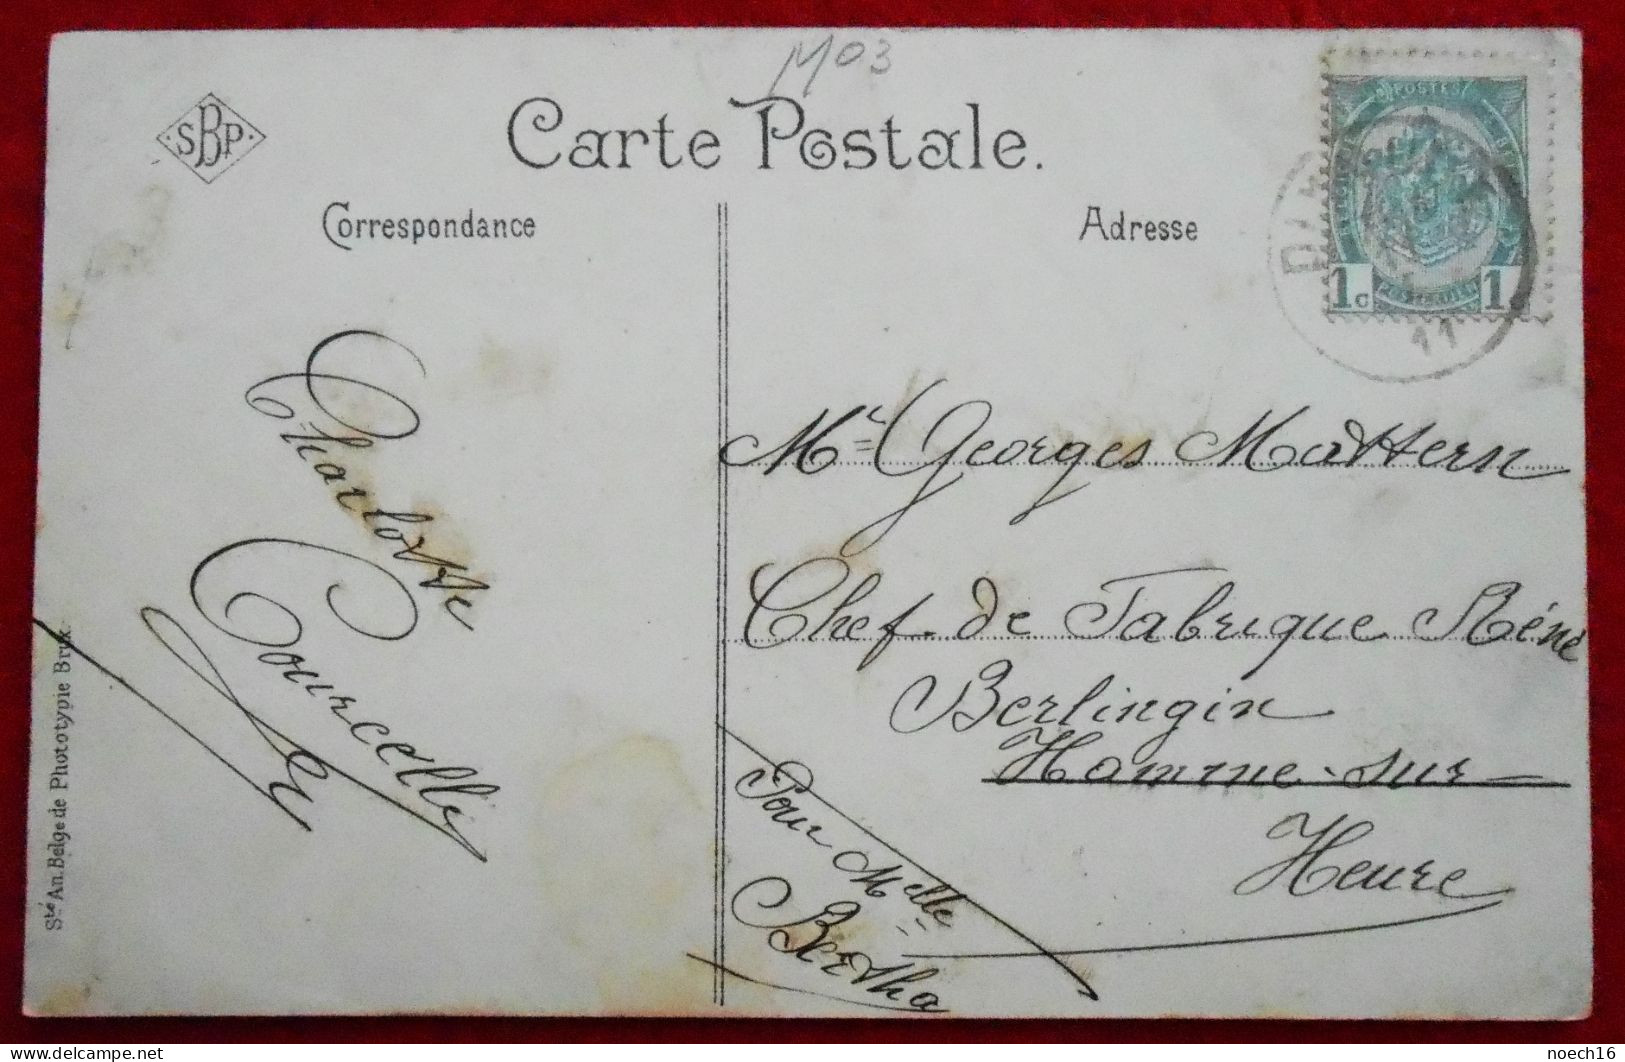 M03
SBP
Carte Postale.
Correspondance
Adresse
POSTES
1c 1
11
Charlotte
Pourcelle
Mr Georges Mattern
Chef de Fabrique Réné
Berlingin
Hamme-sur-
Heure
Pour Melle
Bertha
Sté An. Belge de Phototypie Brux.
noech16